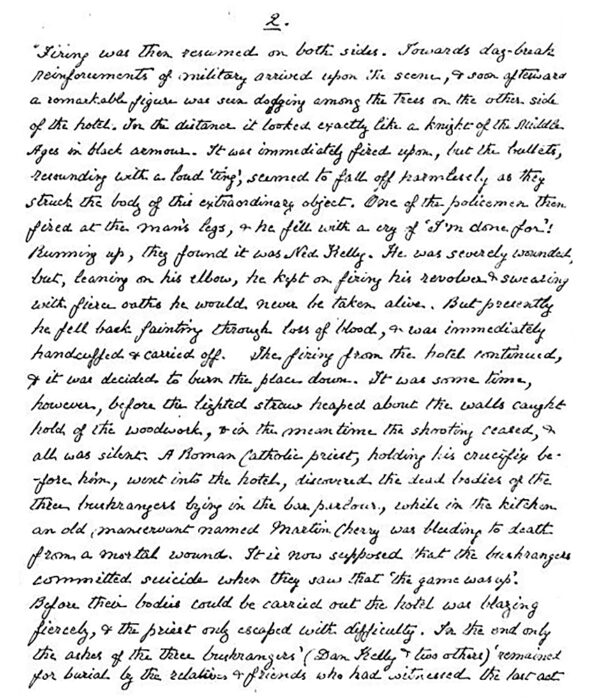 2.
"Firing was then resumed on both sides. Towards day-break
reinforcements of military arrived upon the scene, & soon afterward
a remarkable figure was seen dodging among the trees on the other side
of the hotel. In the distance it looked exactly like a knight of the Middle
Ages in black armour. It was immediately fired upon, but the bullets,
resounding with a loud 'ting', seemed to fall off harmlessly as they
struck the body of this extraordinary object. One of the policemen then
fired at the man's legs, & he fell with a cry of 'I'm done for'!
Running up, they found it was Ned Kelly. He was severely wounded,
but, leaning on his elbow, he kept on firing his revolver & swearing
with fierce oaths he would never be taken alive. But presently
he fell back fainting through loss of blood, & was immediately
handcuffed & carried off. The firing from the hotel continued,
& it was decided to burn the place down. It was some time,
however, before the lighted straw heaped about the walls caught
hold of the woodwork, & in the meantime the shooting ceased, &
all was silent. A Roman Catholic priest, holding his crucifix be-
-fore him, went into the hotel, discovered the dead bodies of the
three bushrangers lying in the bar parlour, while in the kitchen
an old manservant named Martin Cherry was bleeding to death
from a mortal wound. It is now supposed that the bushrangers
committed suicide when they saw that 'the game was up'.
Before their bodies could be carried out the hotel was blazing
fiercely, & the priest only escaped with difficulty. In the end only
the ashes of the three bushrangers' (Dan Kelly & two others)' remained
for burial by the relatives & friends who had witnessed the last act